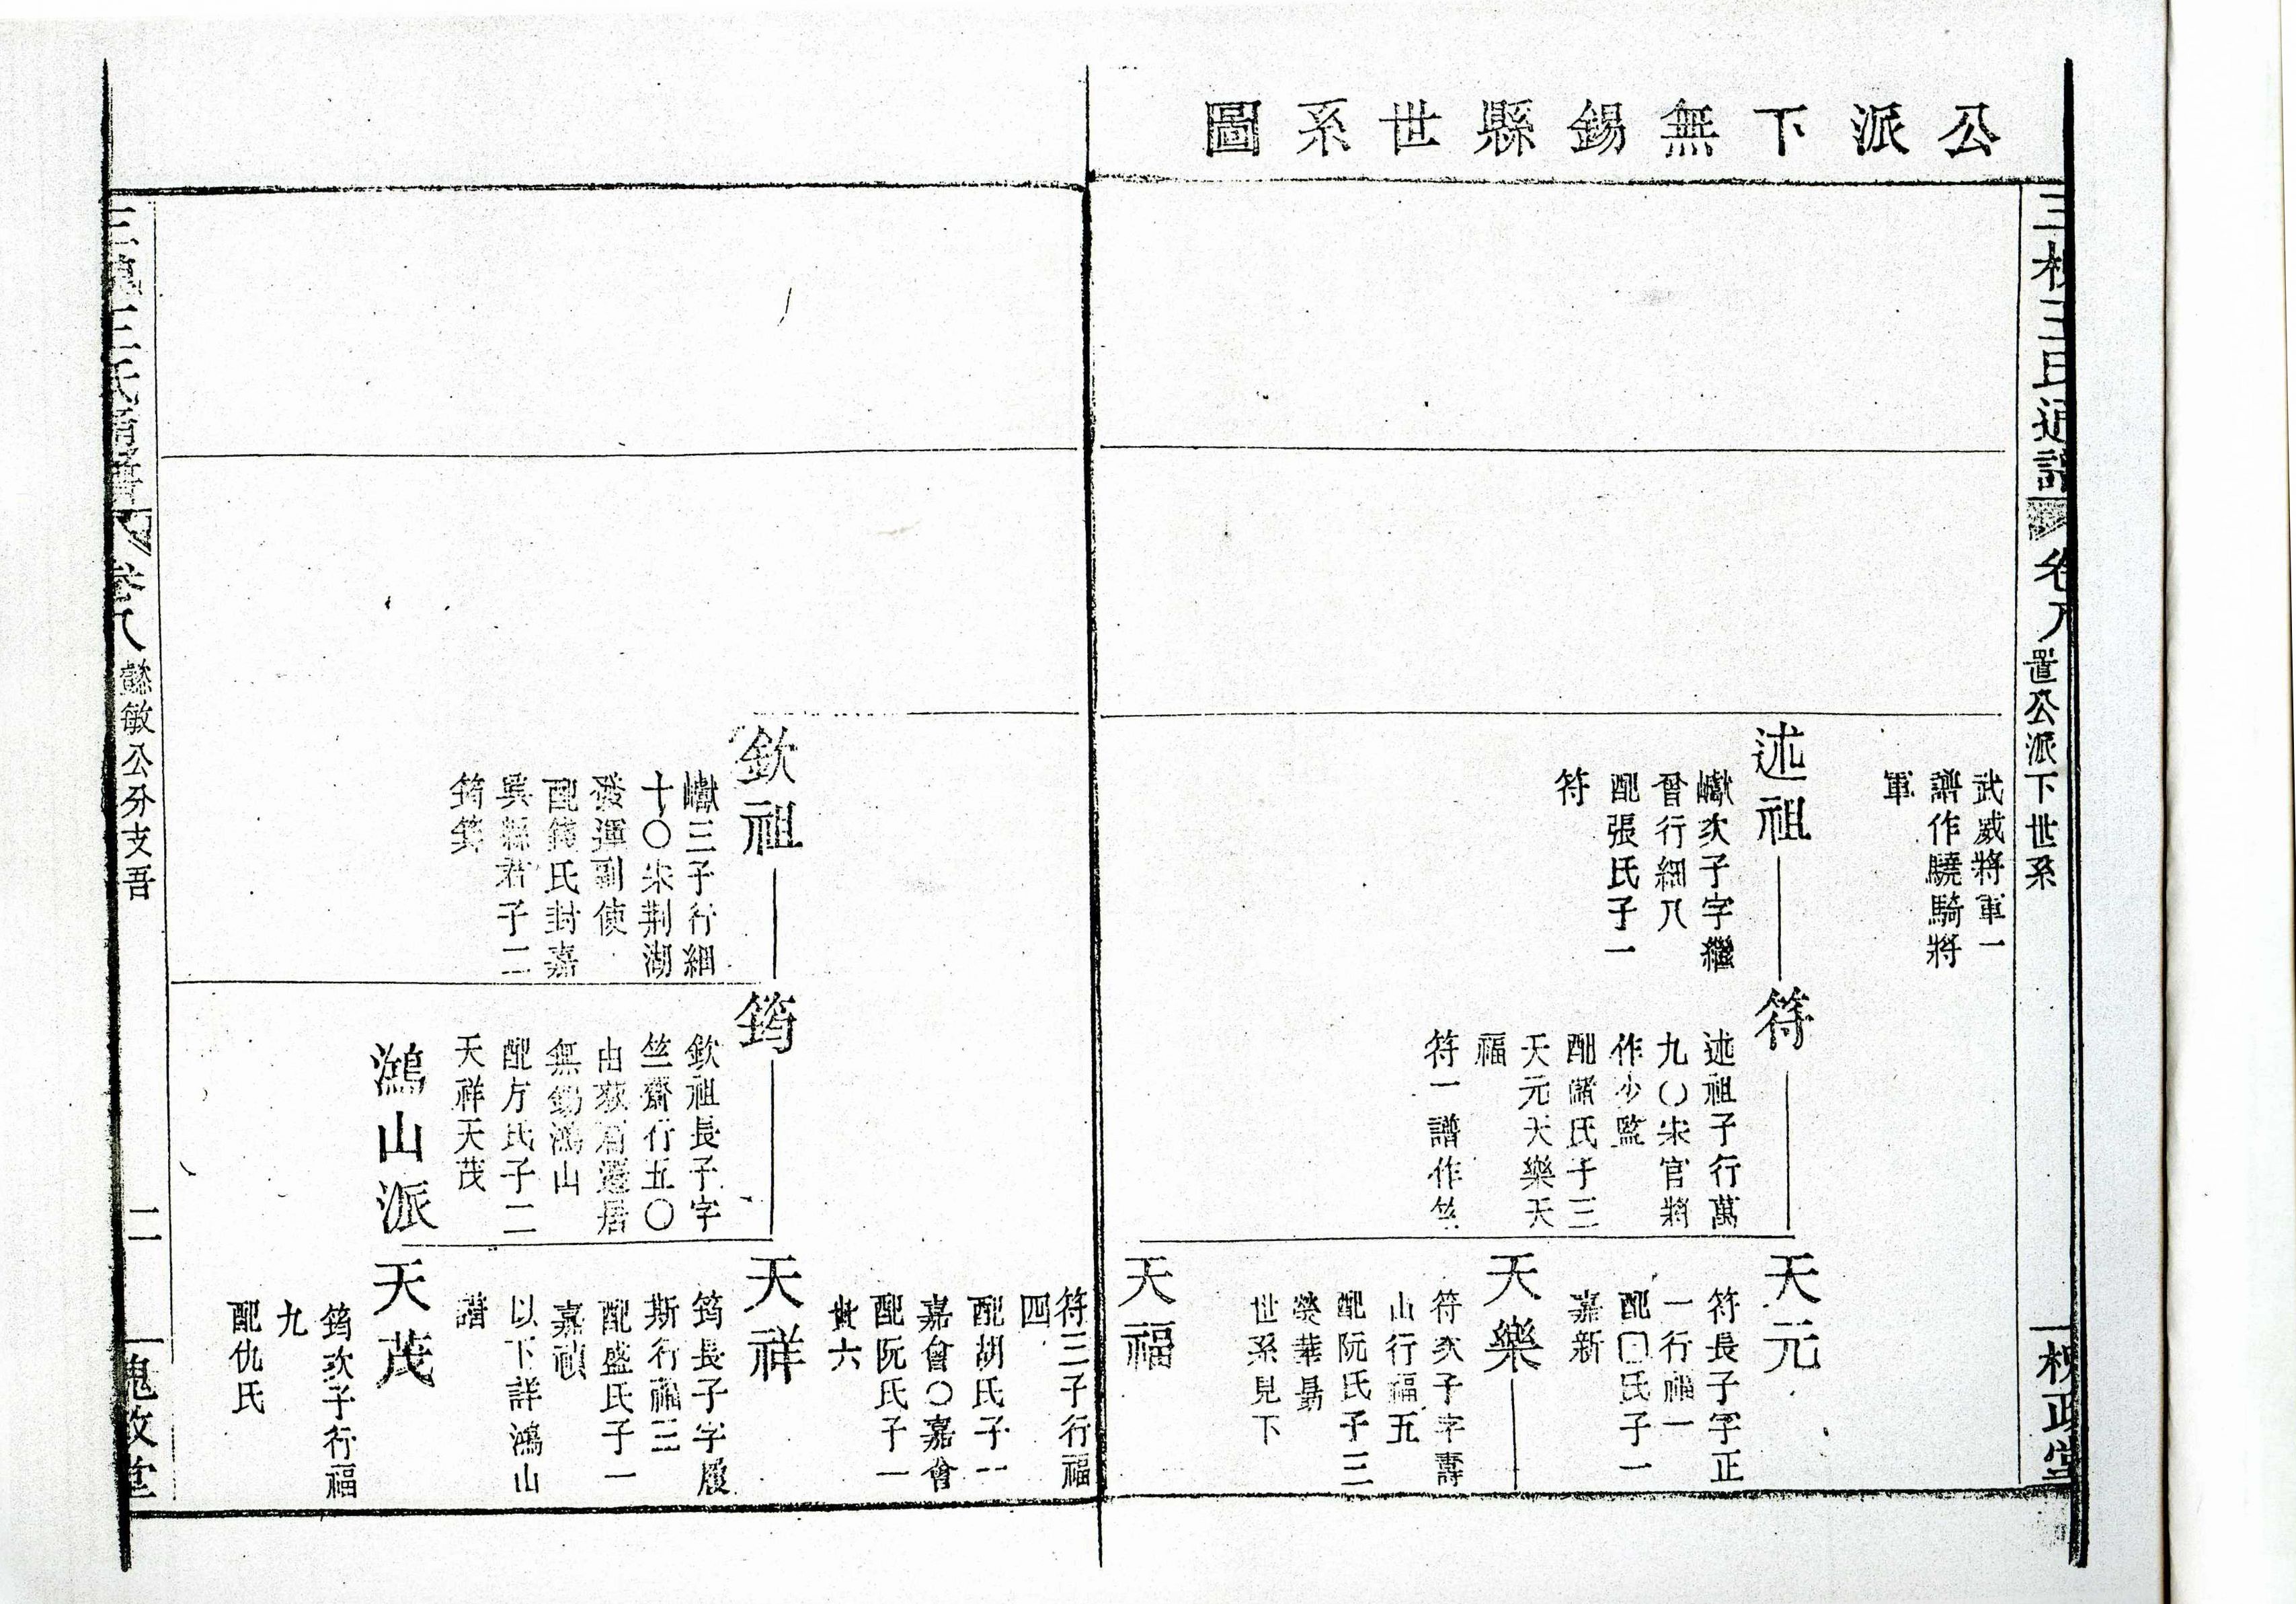 公派下無錫縣世系圖
三槐王氏通譜
卷八
置公派下世系
槐政堂
武威將軍一
譜作驍騎將
軍
述祖
巘次子字繼
曾行細八
配張氏子一
符
符
述祖子行萬
九〇宋官將
作少監
配諸氏子三
天元天樂天
福
符一譜作竺
天元
符長子字正
一行福一
配□氏子一
嘉新
天樂
符次子字壽
山行福五
配阮氏子三
榮華昜
世系見下
天福
符三子行福
四
配胡氏子一
嘉會〇嘉會
配阮氏子一
貴六
欽祖
巘三子行細
十〇宋荆湖
發運副使
配錢氏封嘉
興縣君子二
筠
筠
欽祖長子字
竺齋行五〇
由荻蓆遷居
無錫鴻山
配方氏子二
天祥天茂
鴻山派
天祥
筠長子字履
斯行福三
配盛氏子一
嘉禎
以下詳鴻山
譜
天茂
筠次子行福
九
配仇氏
三槐王氏通譜
卷八
懿敏公分支吾
二
槐政堂